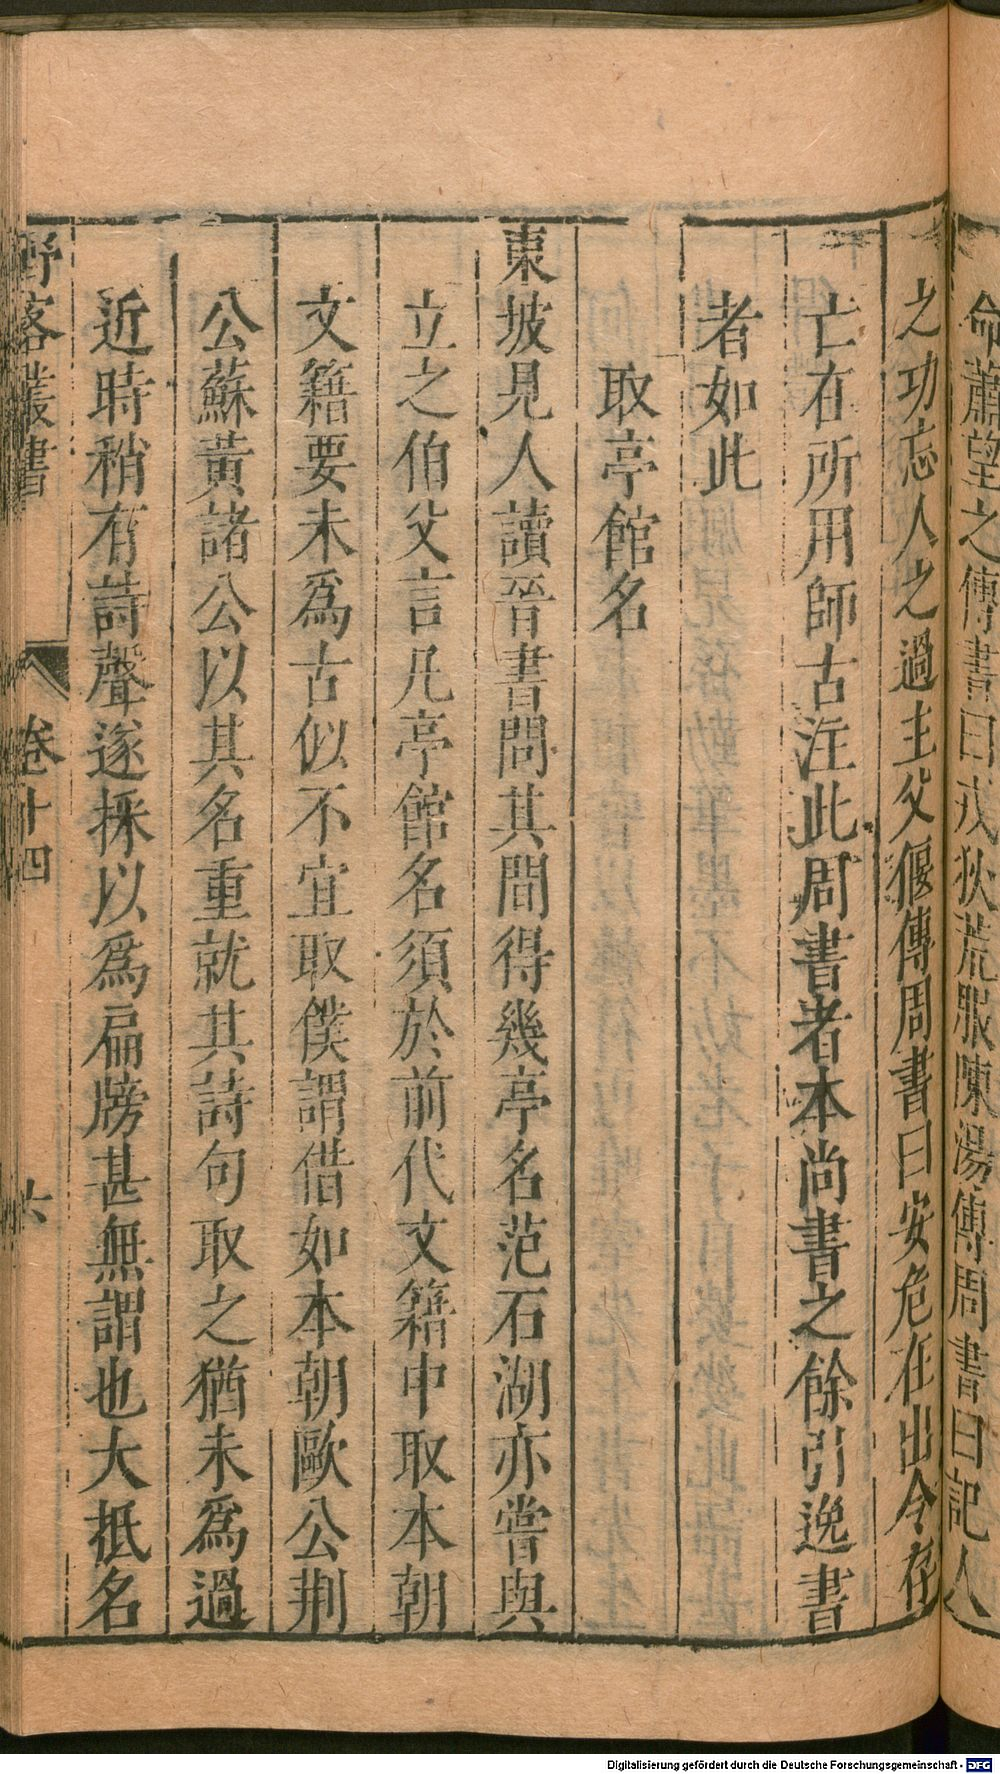 命蕭望之傳書曰戎狄荒服陳湯傳周書曰記人
之功忘人之過主父偃傳周書曰安危在出令存
亡在所用師古注此周書者本尚書之餘引逸書
者如此
取亭館名
東坡見人讀晉書問其間得幾亭名范石湖亦嘗與
立之伯父言凡亭館名須於前代文籍中取本朝
文籍要未爲古似不宜取僕謂借如本朝歐公荆
公蘇黃諸公以其名重就其詩句取之猶未爲過
近時稍有詩聲遂採以爲扁牓甚無謂也大抵名
野客叢書 卷十四 六
Digitalisierung gefördert durch die Deutsche Forschungsgemeinschaft - DFG